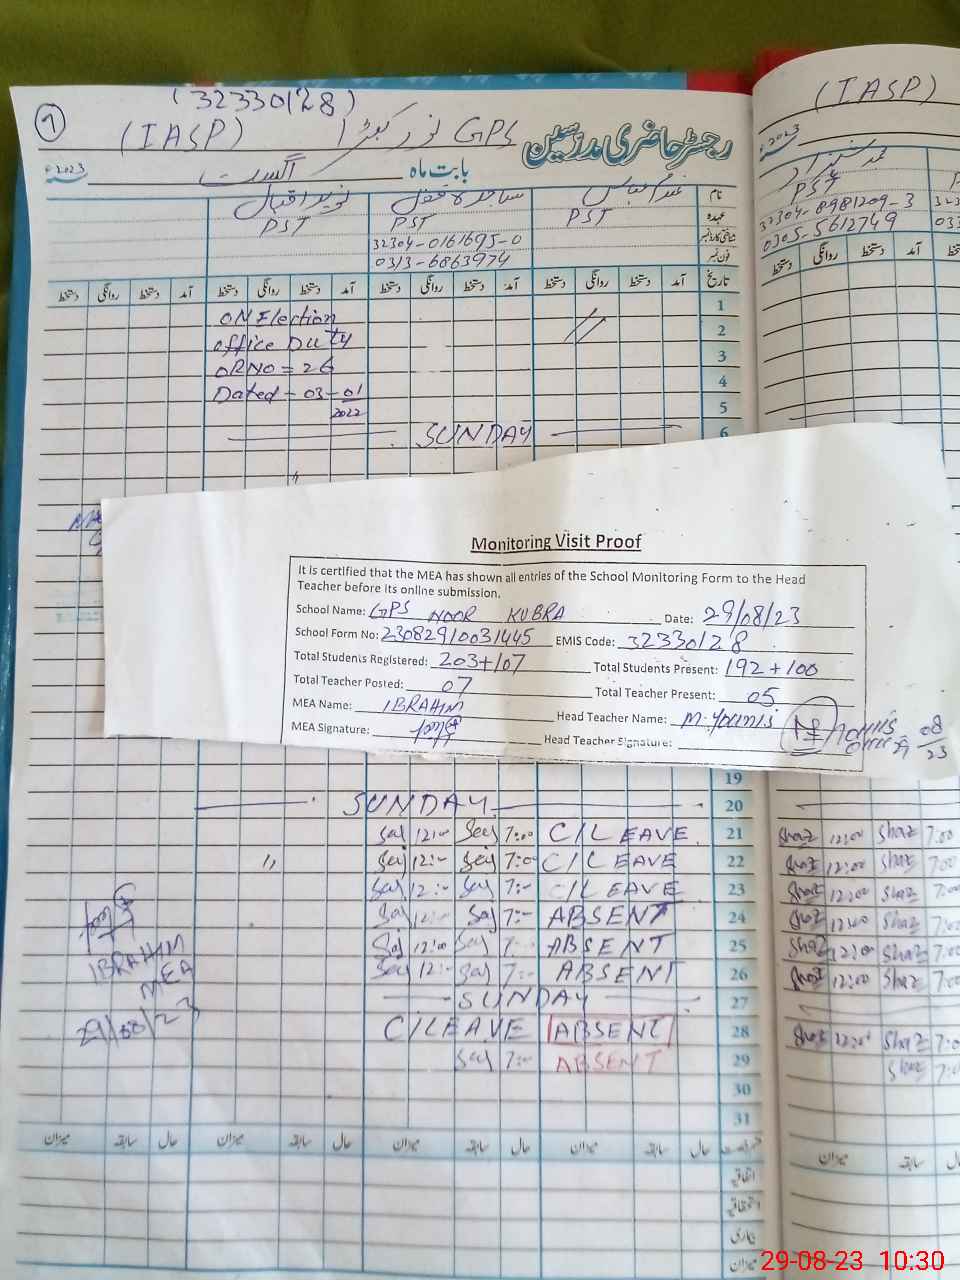 (32330128)
1 (IASP) GPS نور کبڑا (IASP)
رجسٹر حاضری مدرسین
2023ء اگست بابت ماہ 2023ء
نام
نوید اقبال
PST PST PST عہدہ PST
32304-0161695-0 32304-8981209-3
0313-6863974 فون نمبر 0305-5612749
تاریخ آمد دستخط روانگی دستخط آمد دستخط روانگی دستخط آمد دستخط روانگی دستخط آمد دستخط روانگی دستخط
ON Election 1
office Duty 2
OR NO = 26 3
Dated - 03-01 4
2022 5
SUNDAY 6
Monitoring Visit Proof
It is certified that the MEA has shown all entries of the School Monitoring Form to the Head
Teacher before its online submission.
School Name: GPS NOOR KUBRA Date: 29/08/23
School Form No: 23082910031445 EMIS Code: 32330128
Total Students Registered: 203+107 Total Students Present: 192+100
Total Teacher Posted: 07 Total Teacher Present: 05
MEA Name: IBRAHIM Head Teacher Name: M. Younis
MEA Signature: Head Teacher Signature:
08
23
19
SUNDAY 20
Saj 12:00 Saj 7:00 C/LEAVE 21 Shaz 12:00 Shaz 7:00
Saj 12:- Saj 7:00 C/LEAVE 22 Shaz 12:00 Shaz 7:00
Saj 12:- Saj 7:- C/LEAVE 23 Shaz 12:00 Shaz 7:00
Saj 12:- Saj 7:- ABSENT 24 Shaz 12:00 Shaz 7:00
Saj 12:00 Saj 7:- ABSENT 25 Shaz 12:00 Shaz 7:00
Saj 12:- Saj 7:- ABSENT 26 Shaz 12:00 Shaz 7:00
SUNDAY 27
C/LEAVE ABSENT 28 Shaz 12:00 Shaz 7:0
Saj 7:- ABSENT 29 Shaz 7:0
30
31
IBRAHIM
MEA
29/08/23
حال سابقہ میزان حال سابقہ میزان حال سابقہ میزان حال سابقہ میزان
اتفاقیہ
استحقاقیہ
بیماری
میزان
29-08-23 10:30